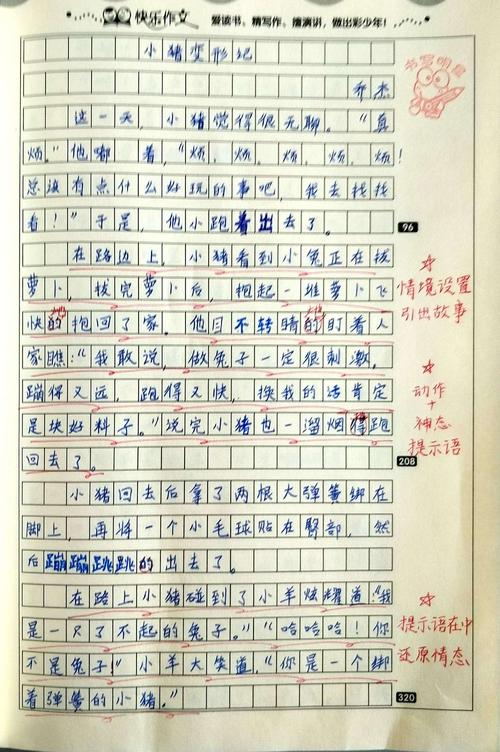 快乐作文 爱读书、精写作、擅演讲，做出彩少年！
书写明星
小猪变形记
乔杰
这一天，小猪觉得很无聊。“真
烦。”他嘟着，“烦，烦，烦，烦，烦！
总该有点什么好玩的事吧，我去找找
看！”于是，他小跑着出去了。
96
在路边上，小猪看到小兔正在拔
萝卜，拔完萝卜后，抱起一堆萝卜飞
快的抱回了家。他目不转睛的盯着人
地
地
家瞧：“我敢说，做兔子一定很刺激，
蹦得又远，跑得又快，换我的话肯定
是块好料子。”说完小猪也一溜烟得跑
地
回去了。
208
小猪回去后拿了两根大弹簧绑在
脚上，再将一个小毛球贴在臀部，然
后蹦蹦跳跳的出去了。
在路上小猪碰到了小羊炫耀道：“我
是一只了不起的兔子。”“哈哈哈！你
不是兔子”小羊大笑道，“你是一个绑
着弹簧的小猪。”
320
情境设置
引出故事
动作
+
神态
提示语
提示语在中
还原情态